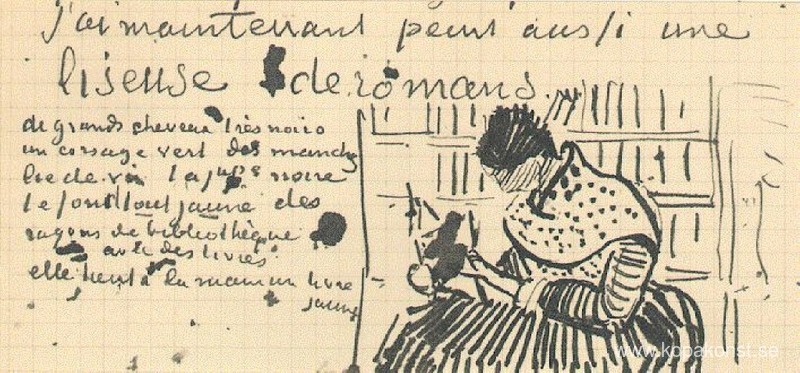 j'ai maintenant peint aussi une
liseuse de romans.
de grands cheveux très noirs
un corsage vert des manches
lie de vin la jupe noire
le fond tout jaune des
rayons de bibliothèque
avec des livres
elle tient à la main un livre
jaune
www.kopakonst.se